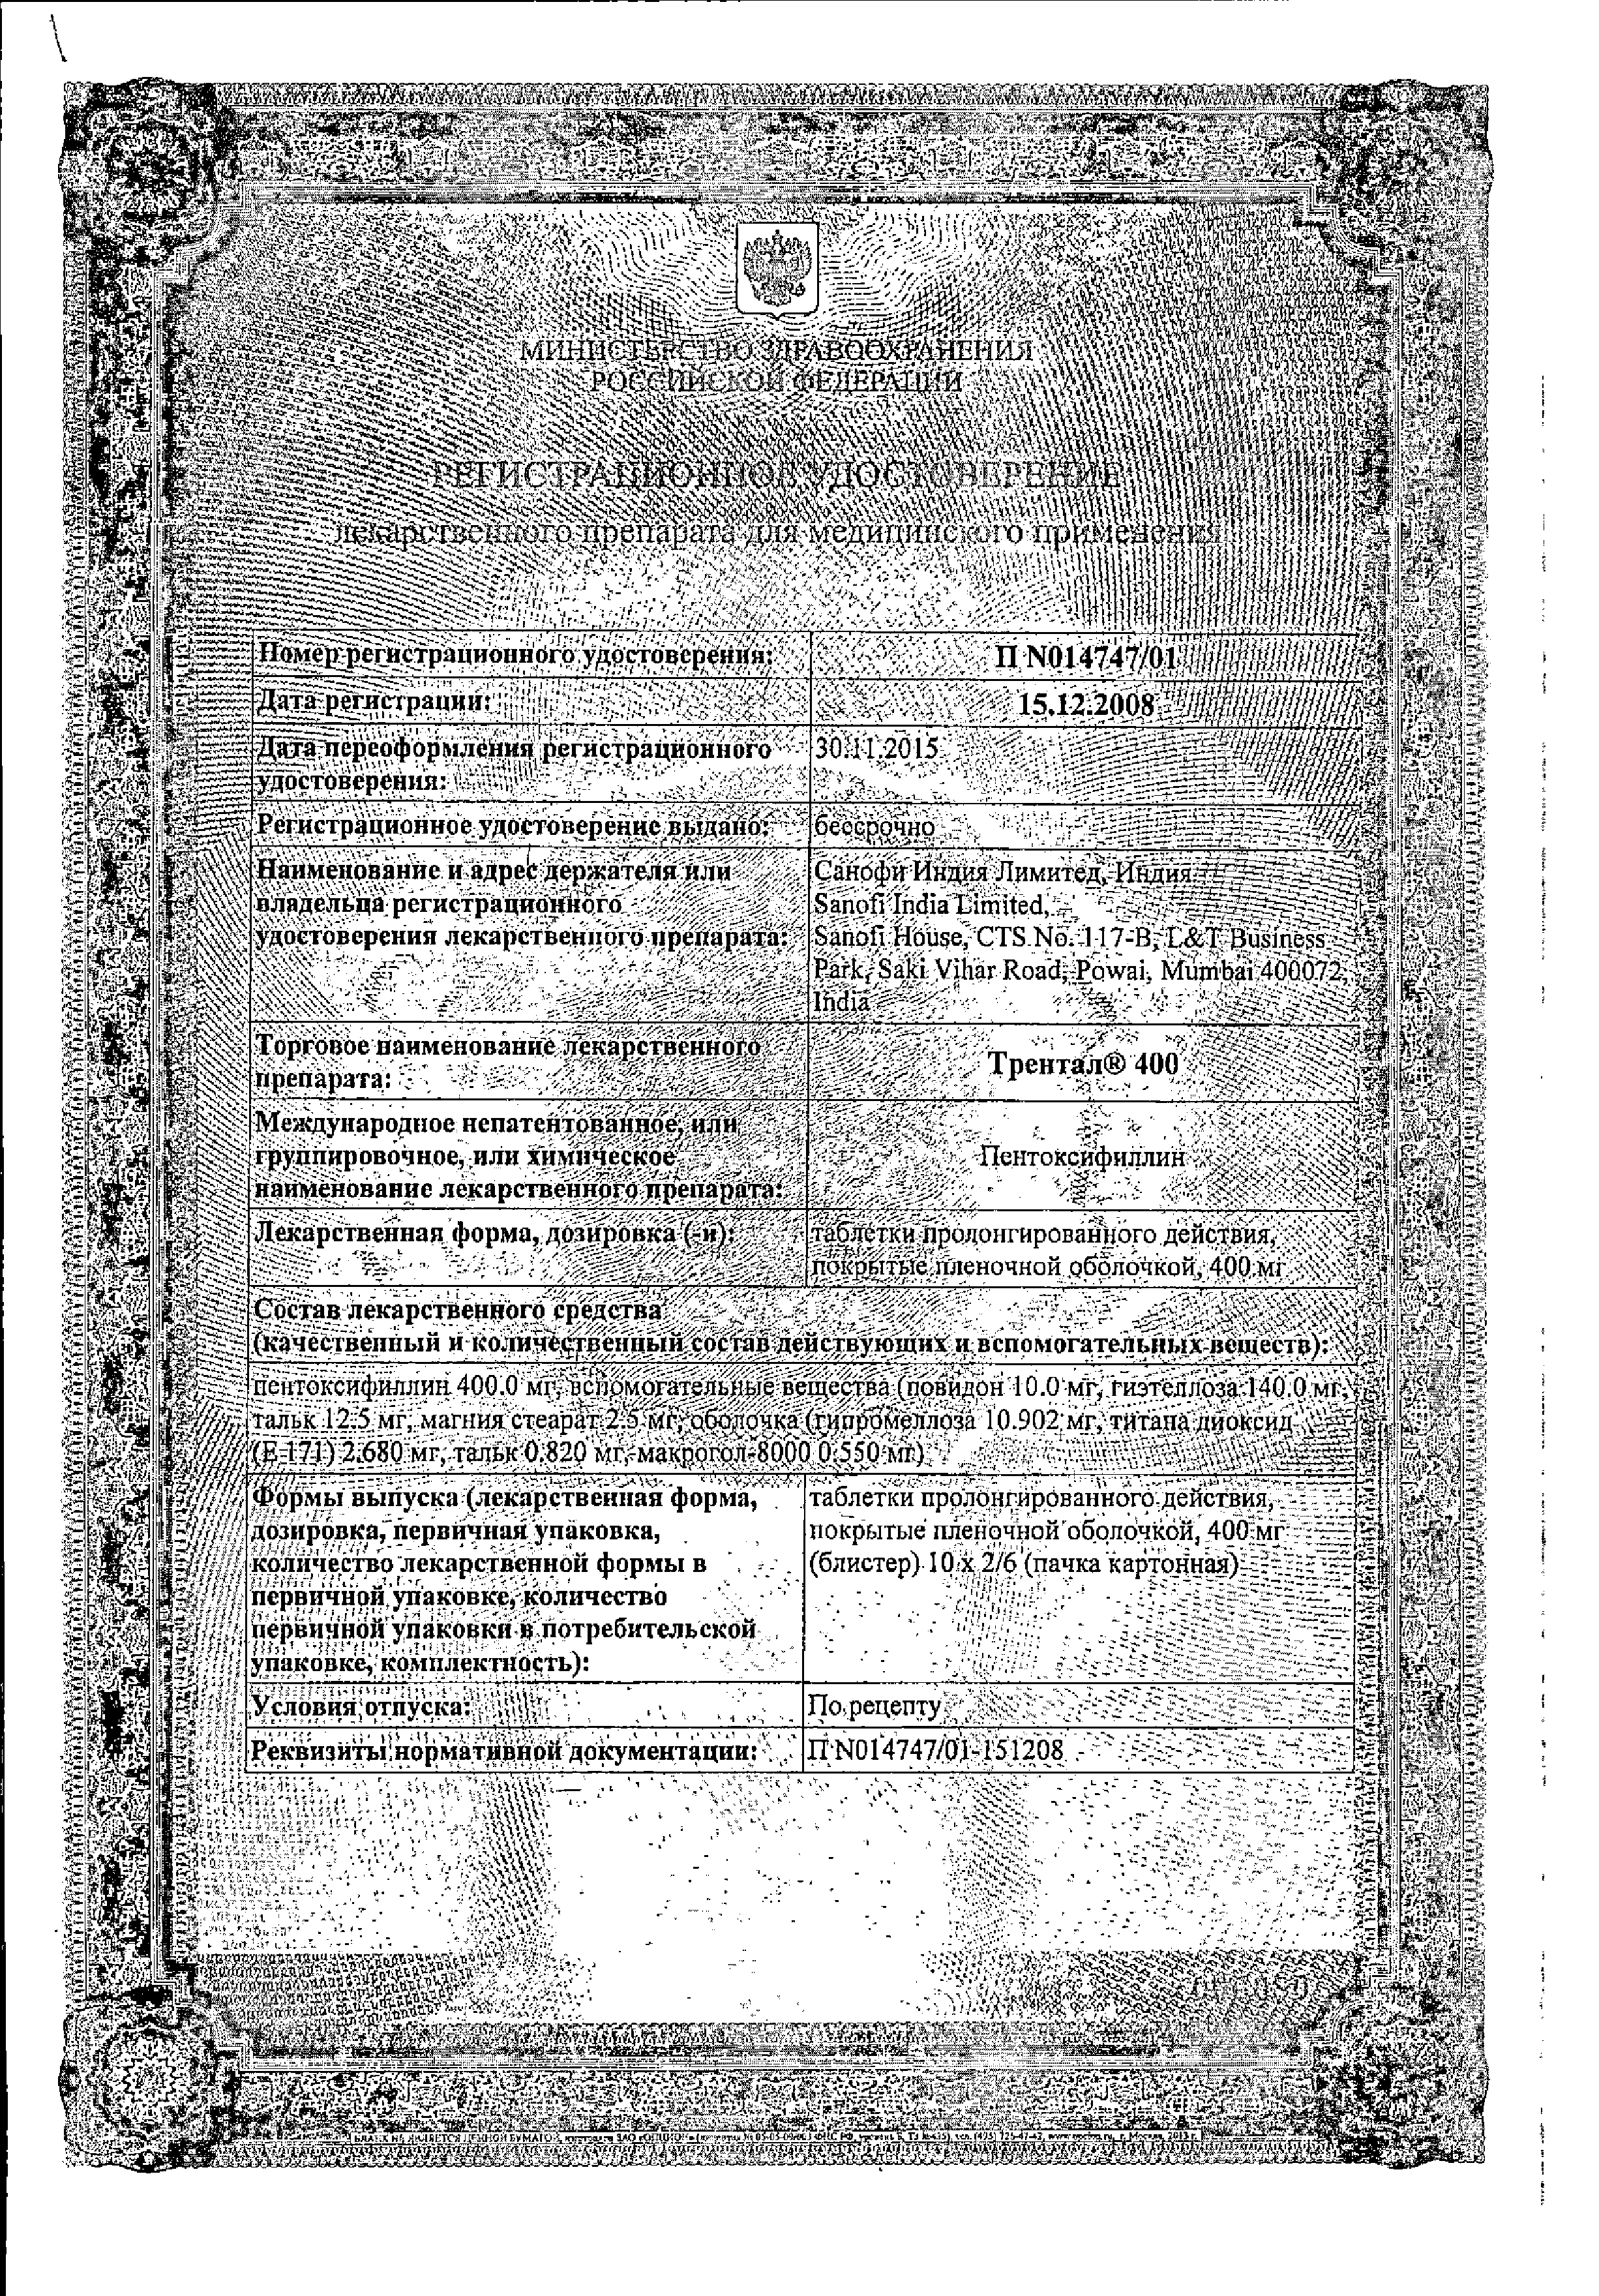 МИНИСТЕРСТВО ЗДРАВООХРАНЕНИЯ
РОССИЙСКОЙ ФЕДЕРАЦИИ
РЕГИСТРАЦИОННОЕ УДОСТОВЕРЕНИЕ
лекарственного препарата для медицинского применения
Номер регистрационного удостоверения: П N014747/01
Дата регистрации: 15.12.2008
Дата переоформления регистрационного
удостоверения:
30.11.2015
Регистрационное удостоверение выдано: бессрочно
Наименование и адрес держателя или
владельца регистрационного
удостоверения лекарственного препарата:
Санофи Индия Лимитед, Индия
Sanofi India Limited,
Sanofi House, CTS No. 117-B, L&T Business
Park, Saki Vihar Road, Powai, Mumbai 400072,
India
Торговое наименование лекарственного
препарата:
Трентал® 400
Международное непатентованное, или
группировочное, или химическое
наименование лекарственного препарата:
Пентоксифиллин
Лекарственная форма, дозировка (-и):
таблетки пролонгированного действия,
покрытые пленочной оболочкой, 400 мг
Состав лекарственного средства
(качественный и количественный состав действующих и вспомогательных веществ):
пентоксифиллин 400.0 мг, вспомогательные вещества (повидон 10.0 мг, гиэтеллоза 140.0 мг,
тальк 12.5 мг, магния стеарат 2.5 мг, оболочка (гипромеллоза 10.902 мг, титана диоксид
(Е-171) 2.680 мг, тальк 0.820 мг, макрогол-8000 0.550 мг)
Формы выпуска (лекарственная форма,
дозировка, первичная упаковка,
количество лекарственной формы в
первичной упаковке, количество
первичной упаковки в потребительской
упаковке, комплектность):
таблетки пролонгированного действия,
покрытые пленочной оболочкой, 400 мг
(блистер) 10 x 2/6 (пачка картонная)
Условия отпуска: По рецепту
Реквизиты нормативной документации: П N014747/01-151208